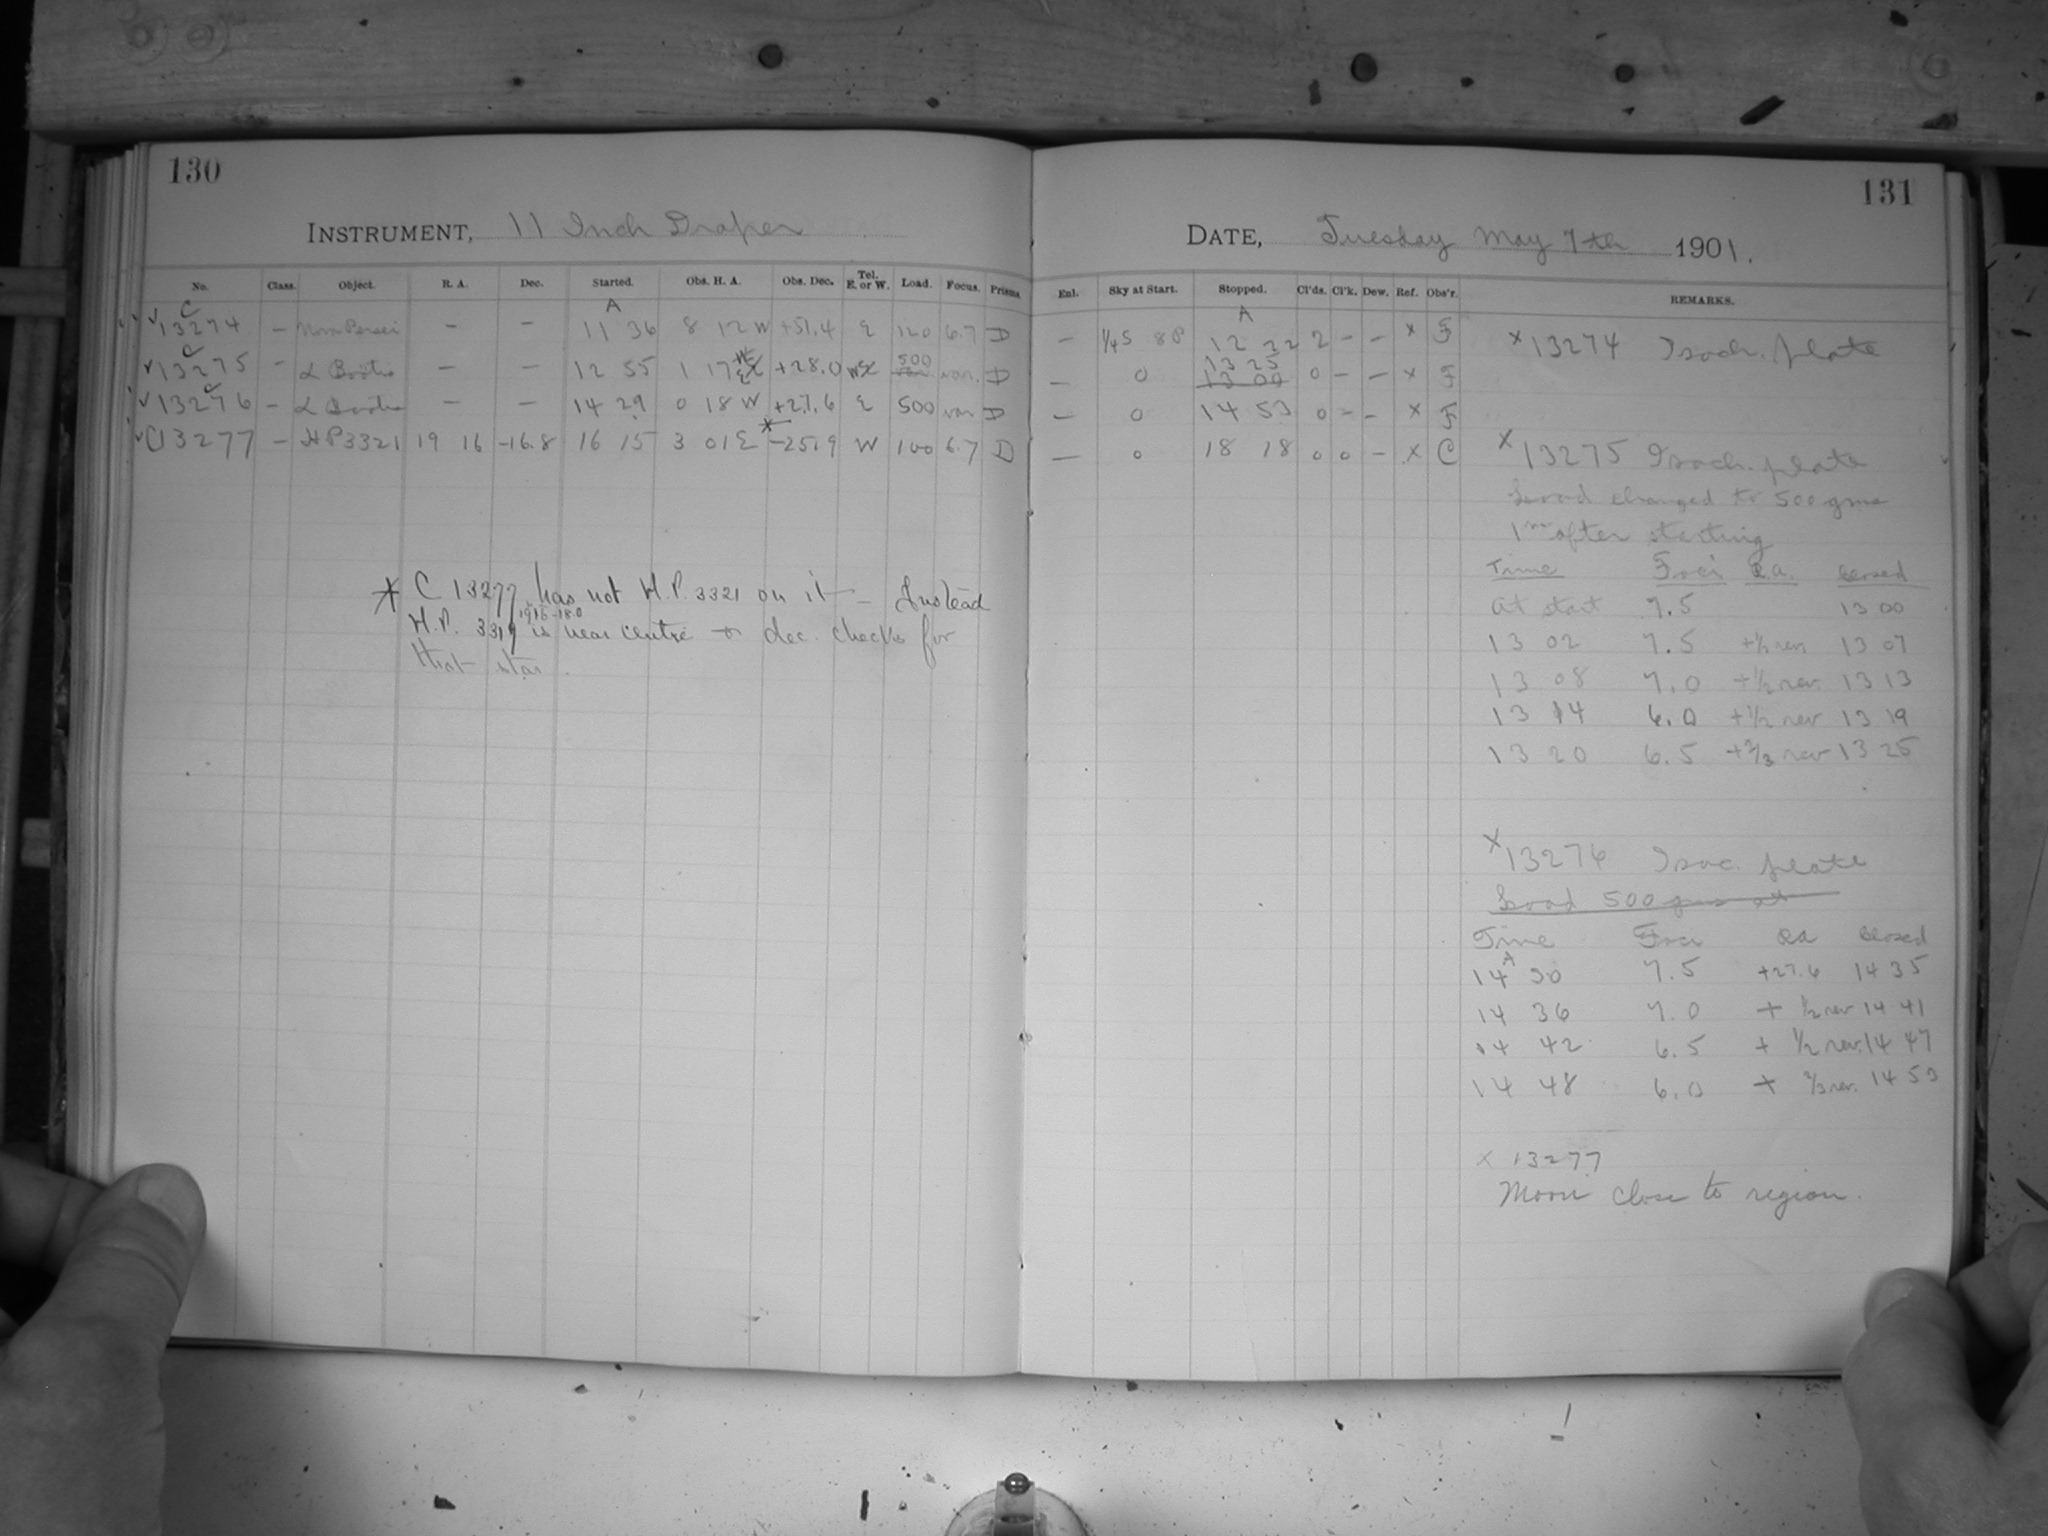 130
INSTRUMENT, 11 Inch Draper
No. Class. Object. R. A. Dec. Started. Obs. H. A. Obs. Dec. Tel. E. or W. Load. Focus. Prisms
C A
✓ 13274 – Nova Persei – – 11 36 8 12 W +51.4 E 120 6.7 D
✓ C 13275 – α Bootis – – 12 55 1 17 W +28.0 W 500 var. D
✓ C 13276 – α Bootis – – 14 29 0 18 W +27.6 E 500 var D
✓ C13277 – HP3321 19 16 -16.8 16 15 3 01 E * -25.9 W 100 6.7 D
* C 13277 has not H.P. 3321 on it – Instead
19 16 -18.0
H.P. 3319 is near centre + dec. checks for
that star.
131
DATE, Tuesday May 7th 1901.
Enl. Sky at Start. Stopped. Cl'ds. Cl'k. Dew. Ref. Obs'r. REMARKS.
A
– 1/4 S 8P 12 22 2 – – x F
13 25
– 0 13 00 0 – – x F
– 0 14 53 0 – – x F
– 0 18 18 0 0 – x C
x 13274 Isoch. plate
x 13275 Isoch. plate
Load changed to 500 gms
1m after starting
Time Foci R.A. Closed
At start 7.5 13 00
13 02 7.5 +1/2 rev. 13 07
13 08 7.0 +1/2 rev. 13 13
13 14 6.0 +1/2 rev 13 19
13 20 6.5 +2/3 rev 13 25
x 13276 Isoc. plate
Load 500 gms at
Time Foci RA Closed
A
14 30 7.5 +27.6 14 35
14 36 7.0 + 1/2 rev 14 41
14 42 6.5 + 1/2 rev. 14 47
14 48 6.0 + 2/3 rev. 14 53
x 13277
Moon close to region.